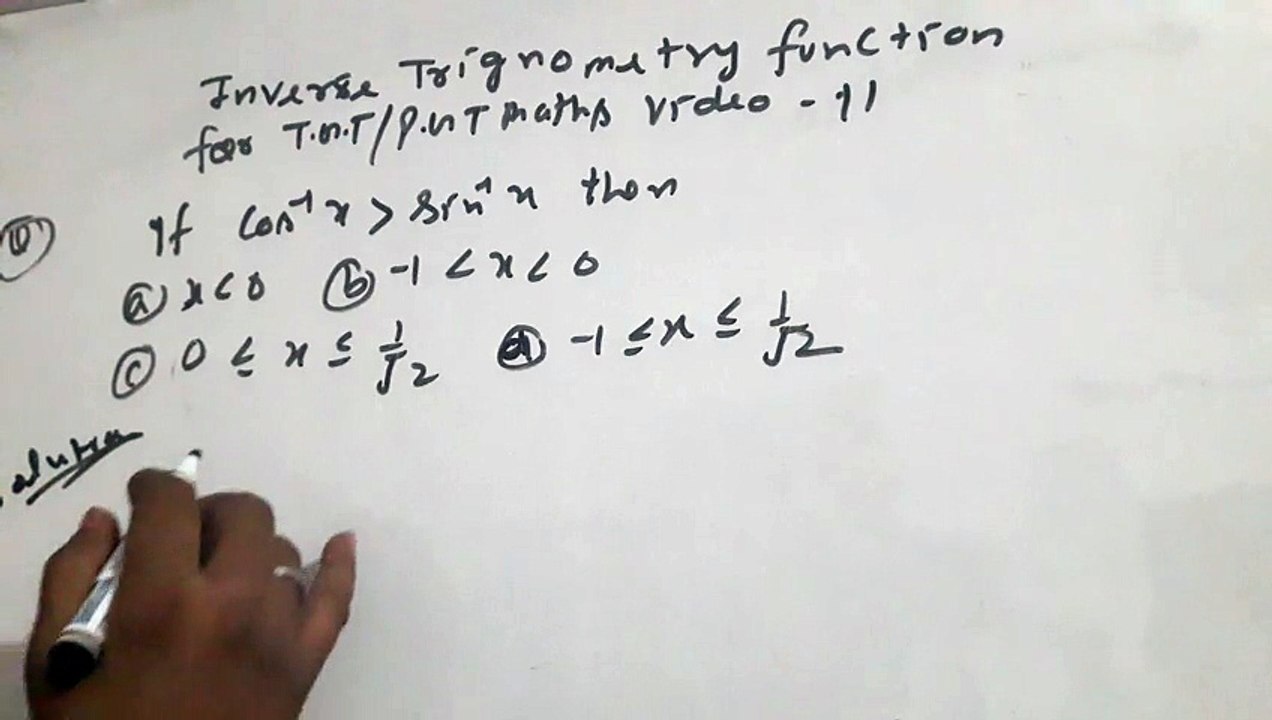 Inverse Trignometry function
for T.G.T/P.G.T Maths video - 11
Q If cos⁻¹ x > sin⁻¹ x then
(a) x < 0 (b) -1 < x < 0
(c) 0 ≤ x ≤ 1/√2 (d) -1 ≤ x ≤ 1/√2
Solution